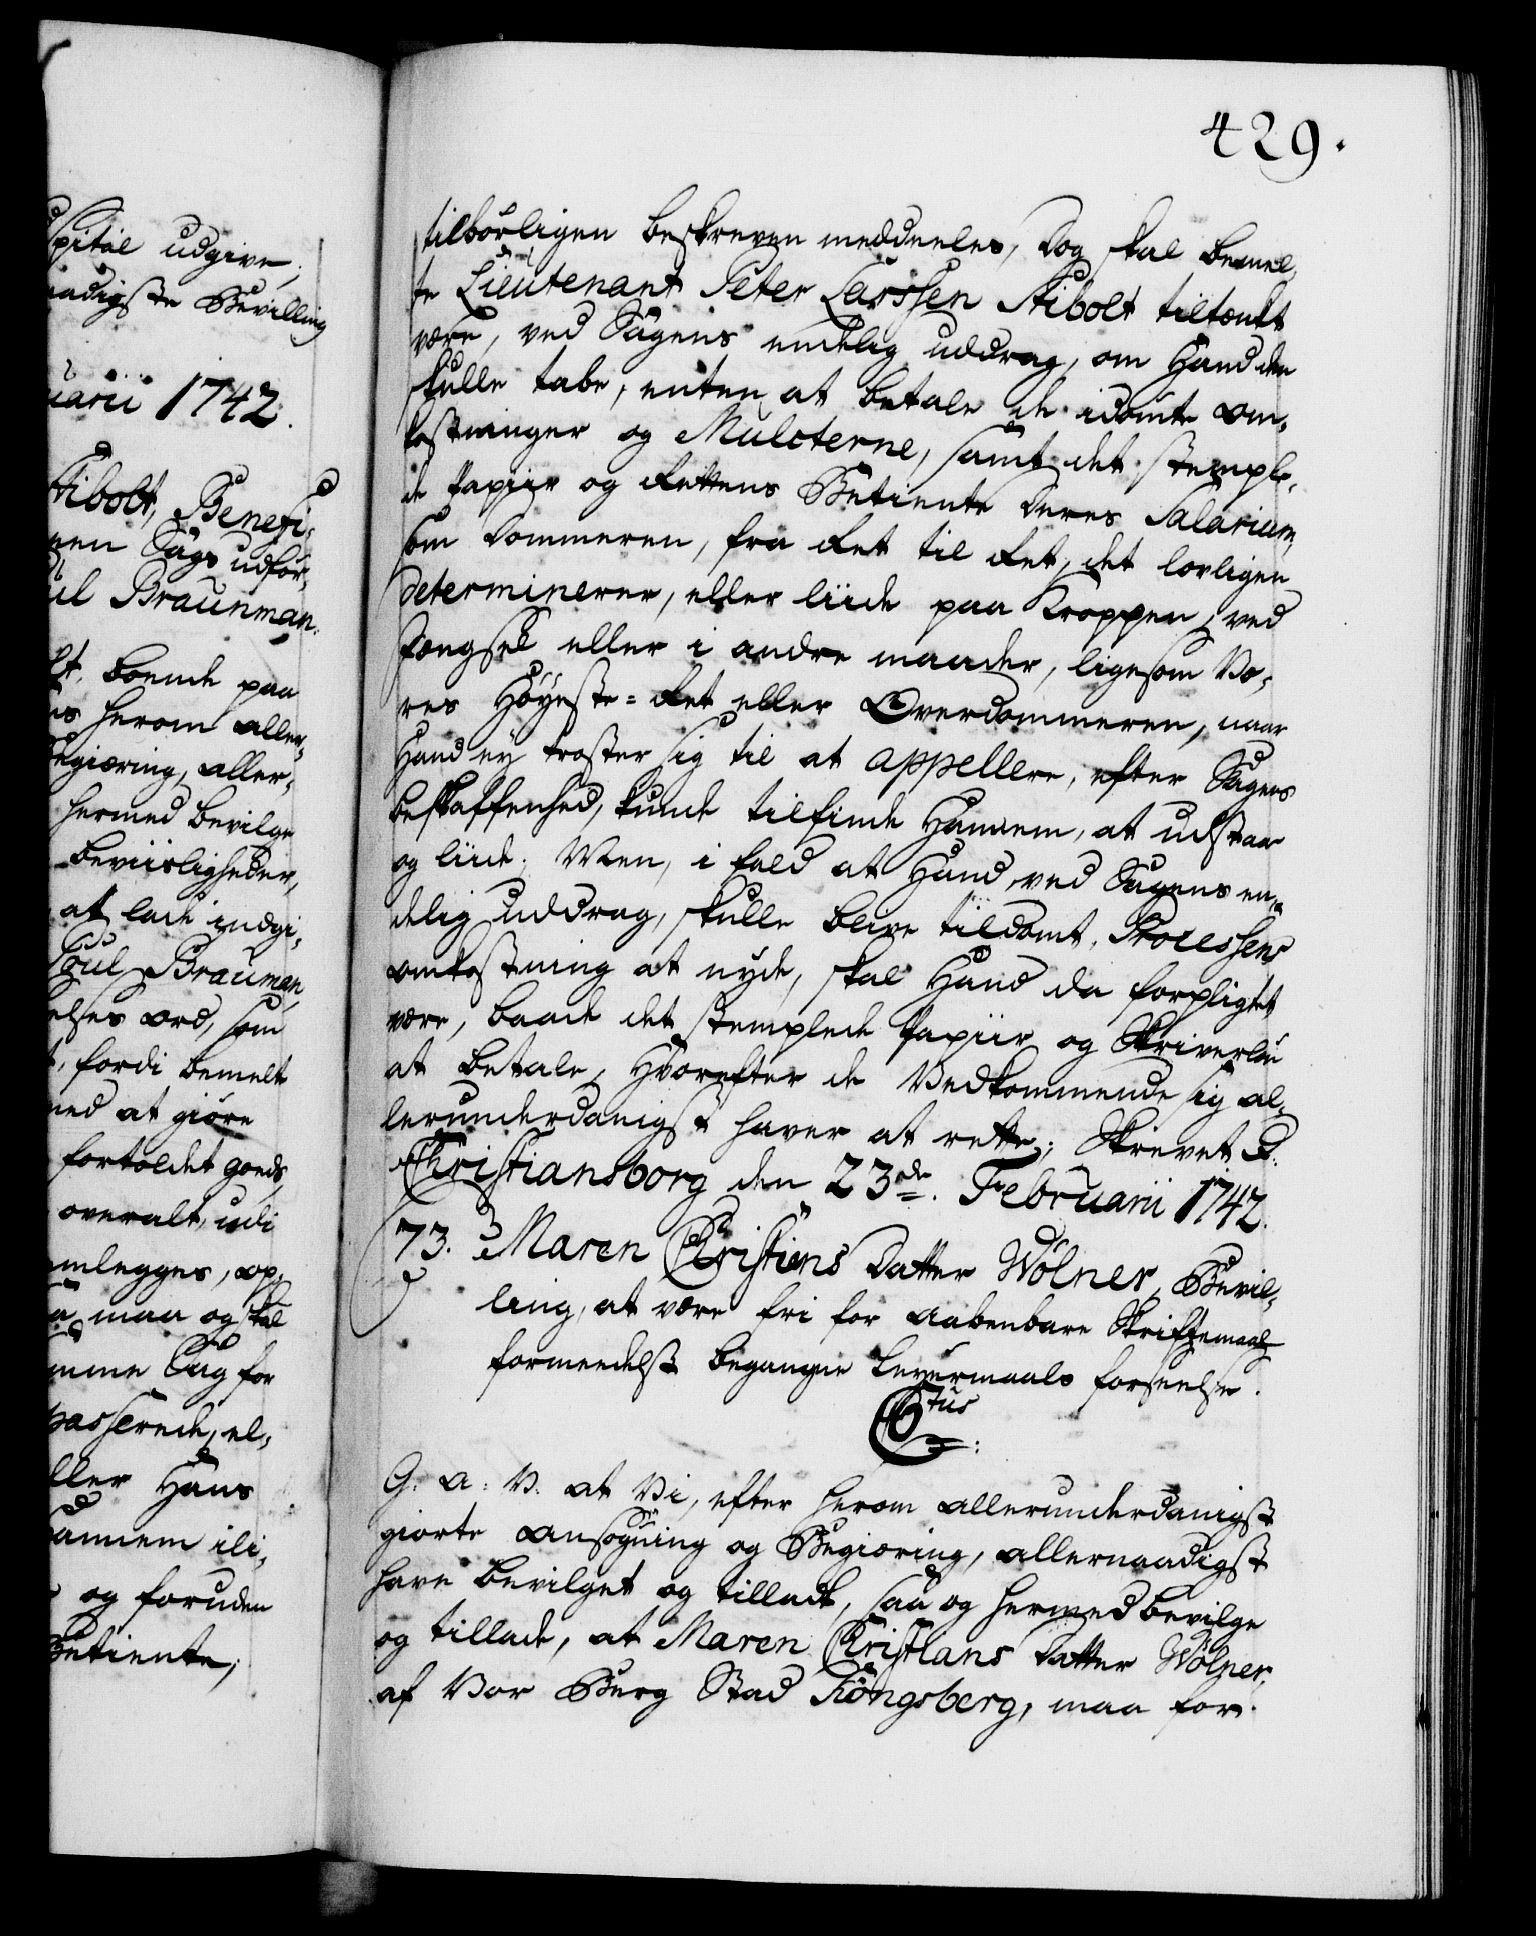 spital udgive,
naadigste Bevilling
uarii 1742.
Stibolt, Benefi-
nen Sags udför-
ul Braunman.
lt, boende paa
is herom aller-
Begiæring, aller-
hermed bevilge
beviisligheder,
at lade indgi-
Poul Brauman,
elses ord, som
t, fordi bemelte
med at giöre
fortoldet goeds,
overalt, udi
emlegges, op-
a, maa og skal
mme Sag for
passerede, el-
ller Hans
hannem ili-
og foruden
Betiente,
429.
tilbörligen beskreven meddeeles, Dog skal bemel-
te Lieutenant Peter Larssen Stibolt tiltænkt
være, ved Sagens endelig uddrag, om Hand den
skulle tabe, enten at betale de idömte Om-
kostninger og Mulcterne, samt det stemple-
de Papiir og Rettens Betiente Deres Salarium,
som Dommeren, fra Ret til Ret, det lovligen
determinerer, eller liide paa Kroppen, ved
Fængsel eller i andre maader, ligesom Vo-
res Höyeste-Ret eller Overdommeren, naar
Hand ey tröster sig til at appellere, efter Sagens
beskaffenhed, kunde tilfinde Hannem, at udstaa
og liide. Men, i fald at Hand, ved Sagens en-
delig Uddrag, skulle blive tildömt, Processens
omkostning at nyde, skal Hand da forpligtet
være, baade det stemplede Papiir og Skriverlön
at betale, Hvorefter de Vedkommende sig al-
lerunderdanigst haver at rette; Skrevet P:
Christiansborg den 23de. Februarii 1742.
73. Maren Christians Datter Wölner, Bevil-
ling, at være fri for aabenbare Skriftemaal
formeedelst begangne Leyermaals forseelse.
Ctus
G: A: V. at Vi, efter herom allerunderdanigst
giorte Ansögning og Begiæring, allernaadigst
have bevilget og tilladt, saa og hermed bevilge
og tillade, at Maren Christians Datter Wölner,
af Vor Berg Stad Kongsberg, maa for-